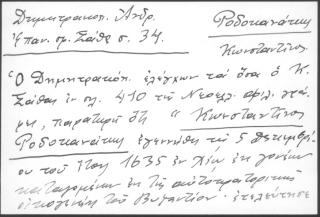 Δημητρακοπ. Ἀνδρ. Ῥοδοκανάκης
Ἐπαν. σφ. Σάθα σ. 34. Κωνσταντῖνος
Ὁ Δημητρακόπ. ἐλέγχων τὰ ὅσα ὁ Κ.
Σάθας ἐν σελ. 410 τῆς Νεοελλ. φιλ. γρά-
φει, παρατηρεῖ ὅτι " Κωνσταντῖνος
Ῥοδοκανάκης ἐγεννήθη τῇ 5 Σεπτεμβρί-
ου τοῦ ἔτους 1635 ἐν Χίῳ ἐκ γονέων
καταγομένων ἐκ τῆς αὐτοκρατορικῆς
οἰκογενείας τοῦ Βυζαντίου· ἐτελεύτησε